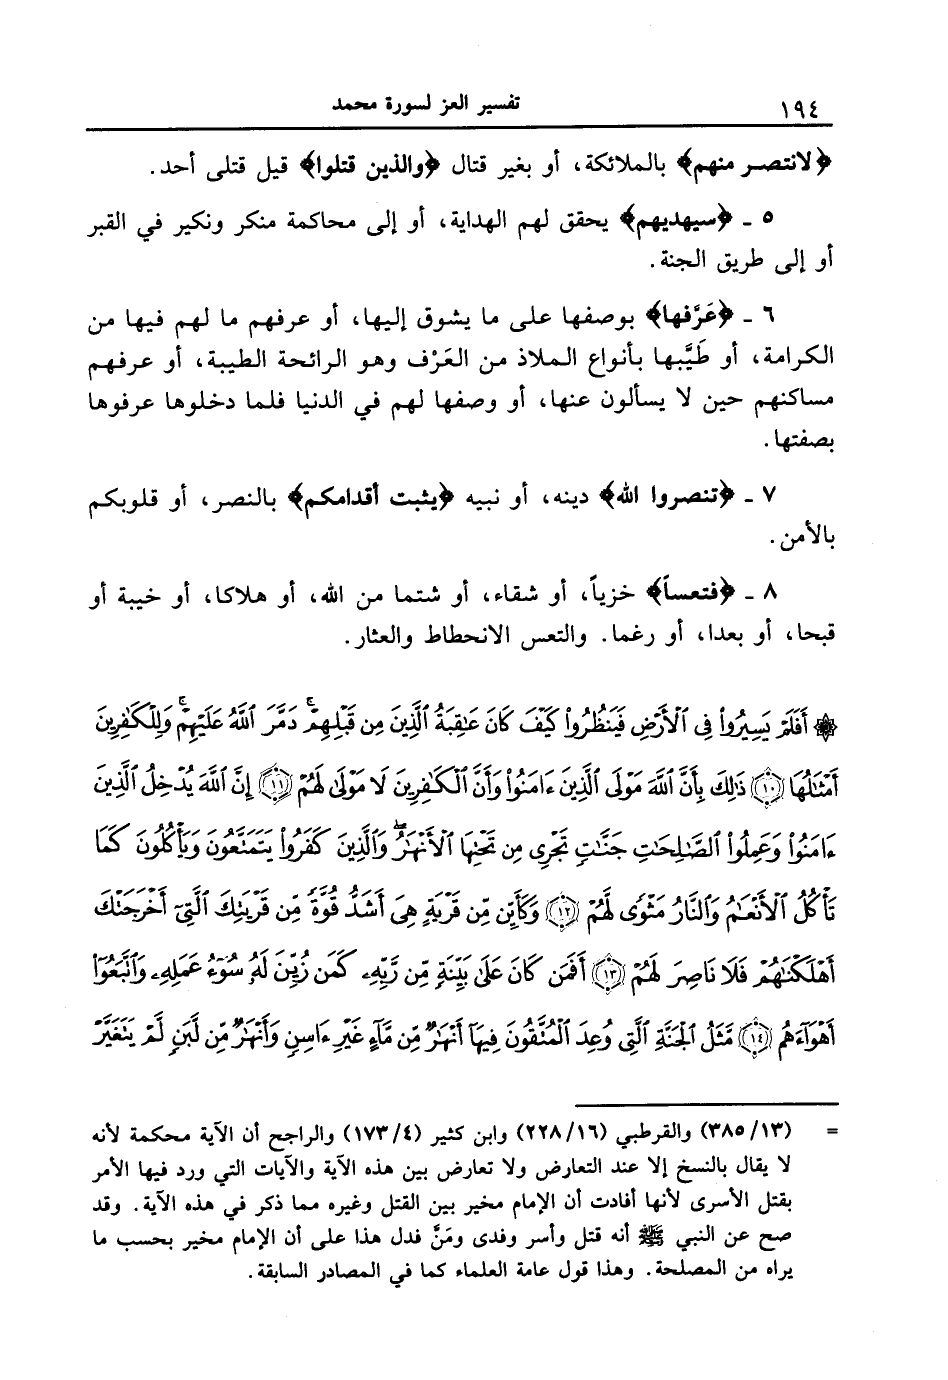 ١٩٤
تفسير العز لسورة محمد
﴿لانتصر منهم﴾ بالملائكة، أو بغير قتال ﴿والذين قتلوا﴾ قيل قتلى أحد.
٥ ـ ﴿سيهديهم﴾ يحقق لهم الهداية، أو إلى محاكمة منكر ونكير في القبر
أو إلى طريق الجنة.
٦ ـ ﴿عَرَّفها﴾ بوصفها على ما يشوق إليها، أو عرفهم ما لهم فيها من
الكرامة، أو طَيَّبها بأنواع الملاذ من العَرْف وهو الرائحة الطيبة، أو عرفهم
مساكنهم حين لا يسألون عنها، أو وصفها لهم في الدنيا فلما دخلوها عرفوها
بصفتها.
٧ ـ ﴿تنصروا الله﴾ دينه، أو نبيه ﴿يثبت أقدامكم﴾ بالنصر، أو قلوبكم
بالأمن.
٨ ـ ﴿فتعساً﴾ خزياً، أو شقاء، أو شتما من الله، أو هلاكا، أو خيبة أو
قبحا، أو بعدا، أو رغما. والتعس الانحطاط والعثار.
۞ أَفَلَمْ يَسِيرُوا۟ فِى ٱلْأَرْضِ فَيَنظُرُوا۟ كَيْفَ كَانَ عَـٰقِبَةُ ٱلَّذِينَ مِن قَبْلِهِمْ ۚ دَمَّرَ ٱللَّهُ عَلَيْهِمْ ۖ وَلِلْكَـٰفِرِينَ
أَمْثَـٰلُهَا ﴿١٠﴾ ذَٰلِكَ بِأَنَّ ٱللَّهَ مَوْلَى ٱلَّذِينَ ءَامَنُوا۟ وَأَنَّ ٱلْكَـٰفِرِينَ لَا مَوْلَىٰ لَهُمْ ﴿١١﴾ إِنَّ ٱللَّهَ يُدْخِلُ ٱلَّذِينَ
ءَامَنُوا۟ وَعَمِلُوا۟ ٱلصَّـٰلِحَـٰتِ جَنَّـٰتٍ تَجْرِى مِن تَحْتِهَا ٱلْأَنْهَـٰرُ ۖ وَٱلَّذِينَ كَفَرُوا۟ يَتَمَتَّعُونَ وَيَأْكُلُونَ كَمَا
تَأْكُلُ ٱلْأَنْعَـٰمُ وَٱلنَّارُ مَثْوًى لَّهُمْ ﴿١٢﴾ وَكَأَيِّن مِّن قَرْيَةٍ هِىَ أَشَدُّ قُوَّةً مِّن قَرْيَتِكَ ٱلَّتِىٓ أَخْرَجَتْكَ
أَهْلَكْنَـٰهُمْ فَلَا نَاصِرَ لَهُمْ ﴿١٣﴾ أَفَمَن كَانَ عَلَىٰ بَيِّنَةٍ مِّن رَّبِّهِۦ كَمَن زُيِّنَ لَهُۥ سُوٓءُ عَمَلِهِۦ وَٱتَّبَعُوٓا۟
أَهْوَآءَهُم ﴿١٤﴾ مَّثَلُ ٱلْجَنَّةِ ٱلَّتِى وُعِدَ ٱلْمُتَّقُونَ ۖ فِيهَآ أَنْهَـٰرٌ مِّن مَّآءٍ غَيْرِ ءَاسِنٍ وَأَنْهَـٰرٌ مِّن لَّبَنٍ لَّمْ يَتَغَيَّرْ
= (٣٨٥/١٣) والقرطبي (٢٢٨/١٦) وابن كثير (١٧٣/٤) والراجح أن الآية محكمة لأنه
لا يقال بالنسخ إلا عند التعارض ولا تعارض بين هذه الآية والآيات التي ورد فيها الأمر
بقتل الأسرى لأنها أفادت أن الإمام مخير بين القتل وغيره مما ذكر في هذه الآية. وقد
صح عن النبي ﷺ أنه قتل وأسر وفدى ومَنَّ فدل هذا على أن الإمام مخير بحسب ما
يراه من المصلحة. وهذا قول عامة العلماء كما في المصادر السابقة.